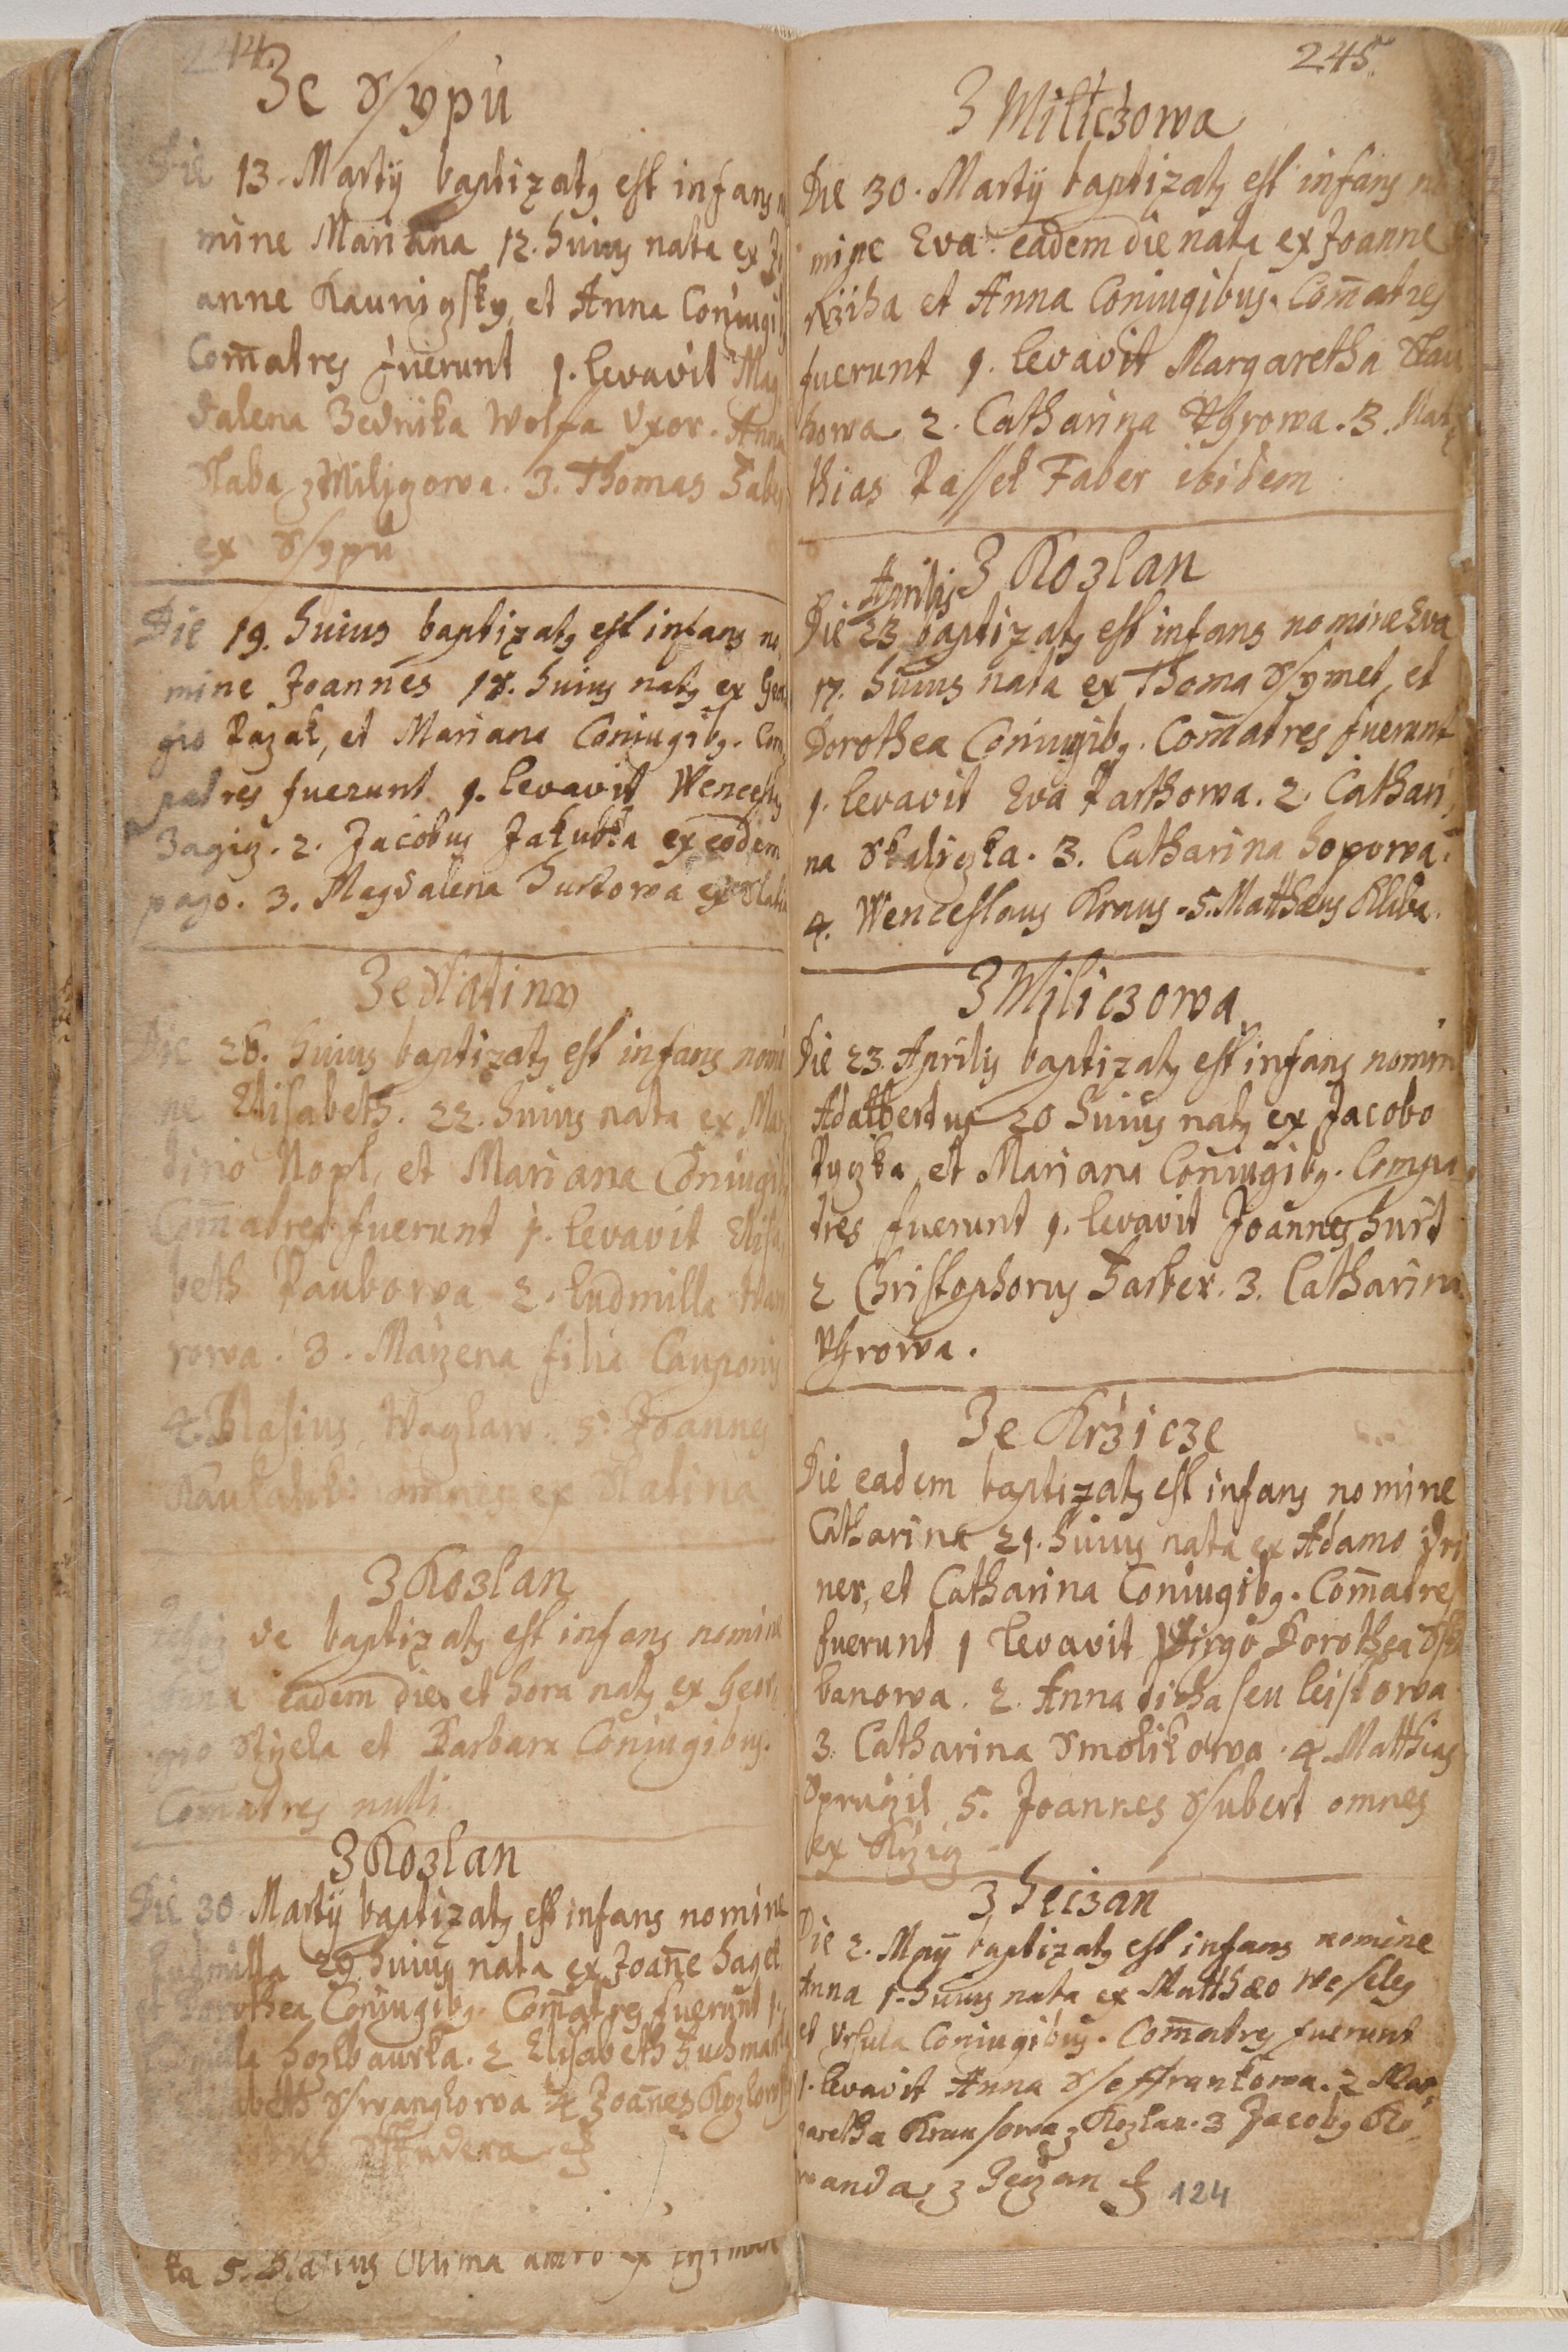 244.
Ze Ssypu
Die 13. Martÿ baptizatꝫ est infans n
mine Mariana 12. huius nata ex J
anne Raunigsky, et Anna Coniugib
Com̄atres fuerunt 1. levavit Mag
dalena Zednika Wolfa Uxor. Anna
Slaba z Miligowa. 3. Thomas Fab
ex Ssypu
Die 19. huius baptizatꝫ est infans no,
mine Joannes 18. huius natꝫ ex Geo
gio Pazak, et Mariana Coniugibꝫ. Com
patres fuerunt 1. levavit Wencesl
Zagiz. 2. Jacobus Jakubka ex eodem
pago. 3. Magdalena Hurtowa ex Slati
Ze Slatiny
Die 28. huius baptizatꝫ est infans nomi
ne Elisabeth. 22. huius nata ex Mar
tino Nopl, et Mariana Coniugib
Com̄atres fuerunt 1. levavit Elisa
beth Pauborva 2. Ludmilla
rowa. 3. Mařzena filia Cauponis
4. Blasius Wazlaw. 5. Joannes
omnes ex Slatina
Z Kozlan
de baptizatꝫ est infans nomine
Anna eadem die et hora natꝫ ex Geor,
gio Styela et Barbara Coniugibus.
Com̄atres nulli
Z Kozlan
Die 30 Martÿ baptizatꝫ est infans nomine
Ludmilla 29 huius nata ex Joan̄e Hagek
et Dorothea Coniugibꝫ. Com̄atres fuerunt 1.
Hozlbaurka. 2 Elisabeth Fuchmanka
Sswanyhowa 4 Joan̄es Kozlowsky
Studena
ta 5. Blasius Ottima ambo ex
245.
Z Militczowa
Die 30. Martÿ baptizatꝫ est infans no
mine Eva eadem die nata ex Joanne
Rziha et Anna Coniugibus. Com̄atres
fuerunt 1. levavit Margaretha Slau
howa 2. Catharina Uhrowa. 3. Mat
thias Passek Faber ibidem
Z Kozlan
Aprilis
Die 23 baptizatꝫ est infans nomine Eva
17. huius nata ex Thoma Ssymek, et
Dorothea Coniugibꝫ. Com̄atres fuerunt
1. levavit Eva Parthowa. 2. Cathari,
na Skalizka. 3. Catharina Hoporwa.
4. Wenceslaus Kraus. 5. Matthæus Kliba.
Z Miliczowa
Die 23. Aprilis baptizatꝫ est infans nomin
Adalbertus 20 huius natꝫ ex Jacobo
Pyczka, et Mariana Coniugibꝫ. Compa
tres fuerunt 1. levavit Joannes Hurt
2 Christophorus Farber. 3. Catharina
Uhrowa.
Ze Krzicze
Die eadem baptizatꝫ est infans nomine
Catharina 21. huius nata ex Adamo Pri
ner, et Catharina Coniugibꝫ. Com̄atres
fuerunt 1 levavit Virgo Dorothea Ssti
banowa. 2. Anna Ticha seu Leistowa
3. Catharina Smolikowa. 4. Matthias
Spruzil 5. Joannes Ssubert omnes
ex Krziz
Z Heczan
Die 2. Maÿ baptizatꝫ est infans nomine
Anna 1. huius nata ex Matthæo Wesely
et Ursula Coniugibus. Com̄atres fuerunt
1. levavit Anna Sseffrankowa. 2 Mar,
garetha Kraussowa z Kozlan. 3 Jacobꝫ Ko
wanda, z Heczan
124